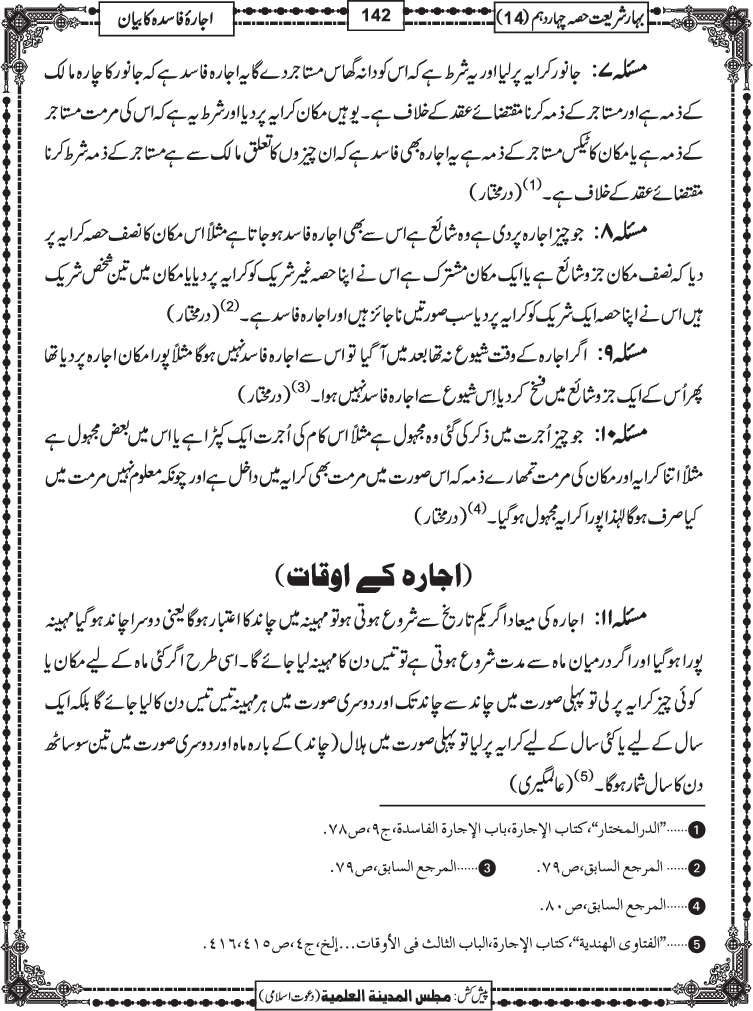 بہارِ شریعت حصہ چہاردہم (14)
142
اجارۂ فاسدہ کا بیان
مسئلہ ۷: جانور کرایہ پر لیا اور یہ شرط ہے کہ اس کو دانہ گھاس مستاجر دے گا یہ اجارہ فاسد ہے کہ جانور کا چارہ مالک
کے ذمہ ہے اور مستاجر کے ذمہ کرنا مقتضائے عقد کے خلاف ہے۔ یوہیں مکان کرایہ پر دیا اور شرط یہ ہے کہ اس کی مرمت مستاجر
کے ذمہ ہے یا مکان کا ٹیکس مستاجر کے ذمہ ہے یہ اجارہ بھی فاسد ہے کہ ان چیزوں کا تعلق مالک سے ہے مستاجر کے ذمہ شرط کرنا
مقتضائے عقد کے خلاف ہے۔(1) (درمختار)
مسئلہ ۸: جو چیز اجارہ پر دی ہے وہ شائع ہے اس سے بھی اجارہ فاسد ہوجاتا ہے مثلاً اس مکان کا نصف حصہ کرایہ پر
دیا کہ نصف مکان جزو شائع ہے یا ایک مکان مشترک ہے اس نے اپنا حصہ غیر شریک کو کرایہ پر دیا یا مکان میں تین شخص شریک
ہیں اس نے اپنا حصہ ایک شریک کو کرایہ پر دیا سب صورتیں ناجائز ہیں اور اجارہ فاسد ہے۔(2) (درمختار)
مسئلہ ۹: اگر اجارہ کے وقت شیوع نہ تھا بعد میں آگیا تو اس سے اجارہ فاسد نہیں ہوگا مثلاً پورا مکان اجارہ پر دیا تھا
پھر اُس کے ایک جزو شائع میں فسخ کردیا اِس شیوع سے اجارہ فاسد نہیں ہوا۔(3) (درمختار)
مسئلہ ۱۰: جو چیز اُجرت میں ذکر کی گئی وہ مجہول ہے مثلاً اس کام کی اُجرت ایک کپڑا ہے یا اس میں بعض مجہول ہے
مثلاً اتنا کرایہ اور مکان کی مرمت تمھارے ذمہ کہ اس صورت میں مرمت بھی کرایہ میں داخل ہے اور چونکہ معلوم نہیں مرمت میں
کیا صرف ہوگا لہٰذا پورا کرایہ مجہول ہوگیا۔(4) (درمختار)
(اجارہ کے اوقات)
مسئلہ ۱۱: اجارہ کی میعاد اگر یکم تاریخ سے شروع ہوتی ہو تو مہینہ میں چاند کا اعتبار ہوگا یعنی دوسرا چاند ہوگیا مہینہ
پورا ہوگیا اور اگر درمیان ماہ سے مدت شروع ہوتی ہے تو تیس دن کا مہینہ لیا جائے گا۔ اسی طرح اگر کئی ماہ کے لیے مکان یا
کوئی چیز کرایہ پر لی تو پہلی صورت میں چاند سے چاند تک اور دوسری صورت میں ہر مہینہ تیس تیس دن کا لیا جائے گا بلکہ ایک
سال کے لیے یا کئی سال کے لیے کرایہ پر لیا تو پہلی صورت میں ہلال (چاند) کے بارہ ماہ اور دوسری صورت میں تین سو ساٹھ
دن کا سال شمار ہوگا۔(5) (عالمگیری)
1 ......"الدرالمختار"،کتاب الإجارة،باب الإجارة الفاسدة،ج۹،ص۷۸.
2 ...... المرجع السابق،ص۷۹. 3 ......المرجع السابق،ص۷۹.
4 ......المرجع السابق،ص۸۰.
5 ......"الفتاوی الهندیة"،کتاب الإجارة،الباب الثالث فی الأوقات...إلخ،ج٤،ص٤١٦،٤١٥.
پیش کش: مجلس المدینة العلمیة (دعوت اسلامی)